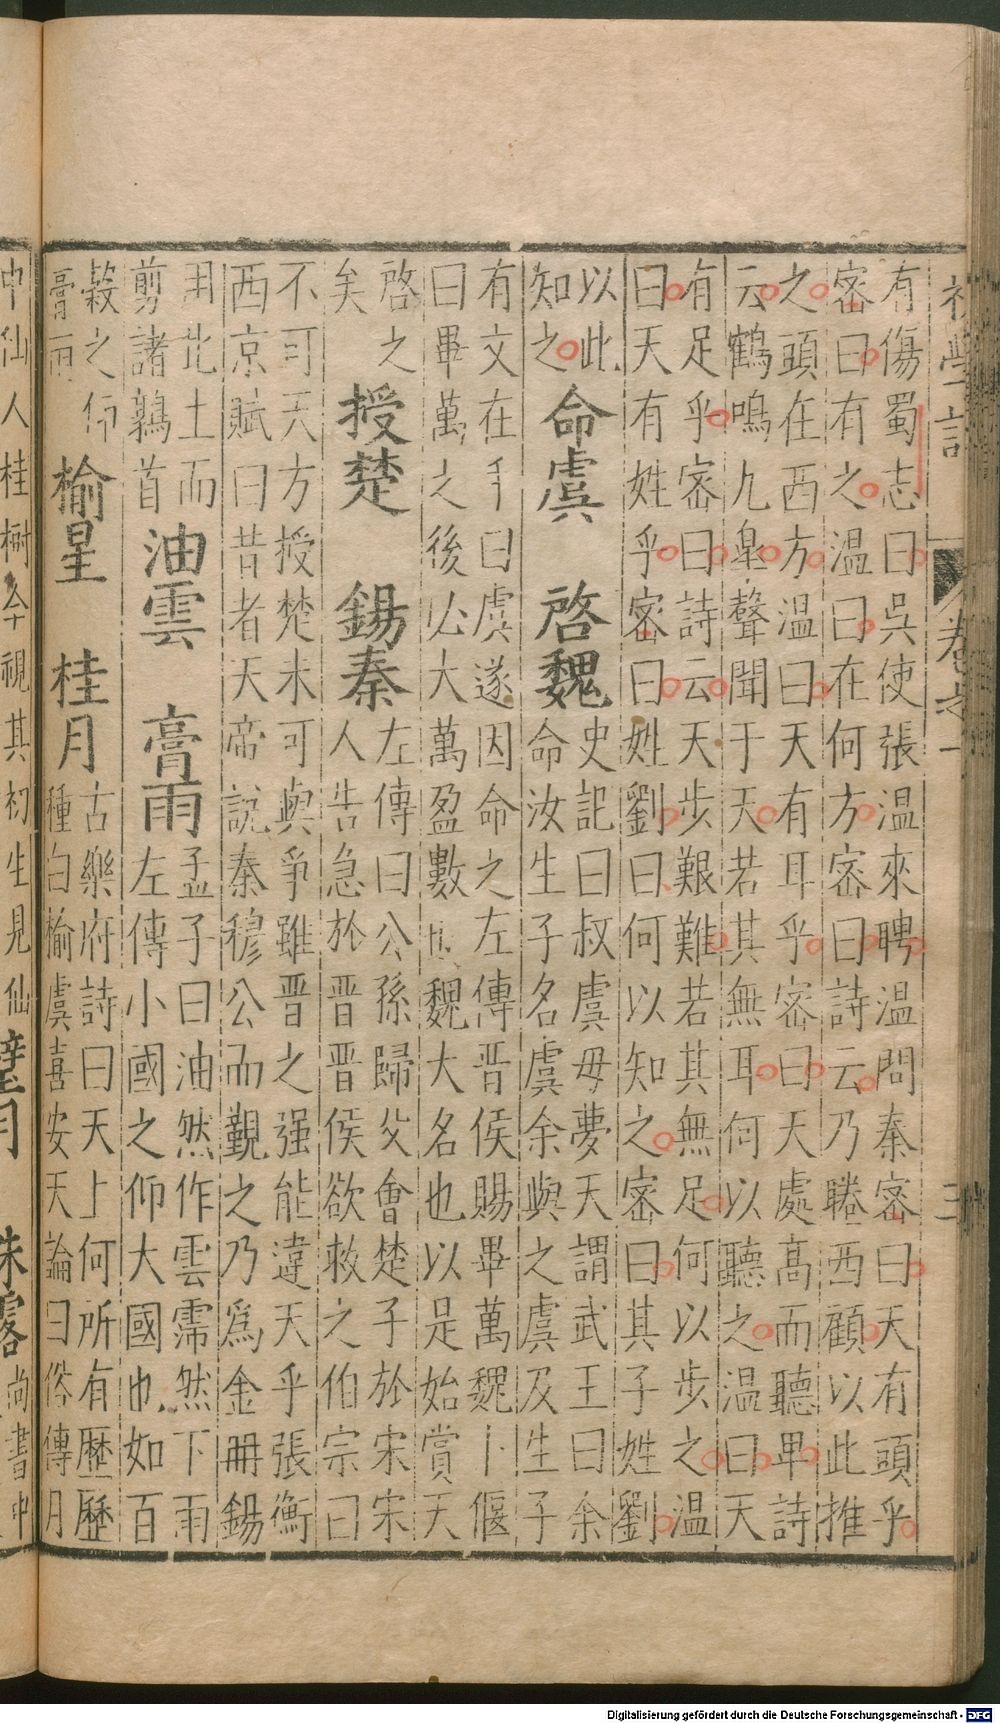 初學記 卷第一 三
有傷蜀志曰吳使張温來聘温問秦宻曰天有頭乎
宻曰有之温曰在何方宻曰詩云乃睠西顧以此推
之頭在西方温曰天有耳乎宻曰天處髙而聽卑詩
云鶴鳴九臯聲聞于天若其無耳何以聽之温曰天
有足乎宻曰詩云天步艱難若其無足何以步之温
曰天有姓乎宻曰姓劉曰何以知之宻曰其子姓劉
以此
知之
命虞 啓魏
史記曰叔虞母夢天謂武王曰余
命汝生子名虞余與之虞及生子
有文在手曰虞遂因命之左傳晋侯賜畢萬魏卜偃
曰畢萬之後必大萬盈數也魏大名也以是始賞天
啓之
矣
授楚 錫秦
左傳曰公孫歸父會楚子於宋宋
人告急於晋晋侯欲救之伯宗曰
不可天方授楚未可與爭雖晋之强能違天乎張衡
西京賦曰昔者天帝説秦穆公而覲之乃爲金册錫
用此土而
剪諸鶉首
油雲 膏雨
孟子曰油然作雲霈然下雨
左傳小國之仰大國也如百
穀之仰
膏雨
榆星 桂月
古樂府詩曰天上何所有歷歷
種白榆虞喜安天論曰俗傳月
中仙人桂樹今視其初生見仙
璧月 珠露
尚書中
Digitalisierung gefördert durch die Deutsche Forschungsgemeinschaft - DFG